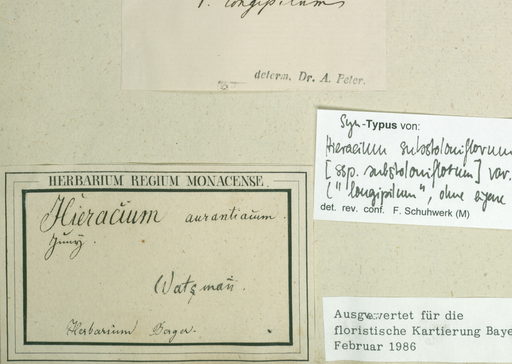 longipilum
determ. Dr. A. Peter.
Syn-Typus von:
Hieracium substoloniflorum
[ssp. substoloniflorum] var.
("longipilum", ohne eigene
det. rev. conf. F. Schuhwerk (M)
HERBARIUM REGIUM MONACENSE.
Hieracium aurantiacum.
Watzmañ.
Herbarium Berger.
Ausgewertet für die
floristische Kartierung Baye
Februar 1986